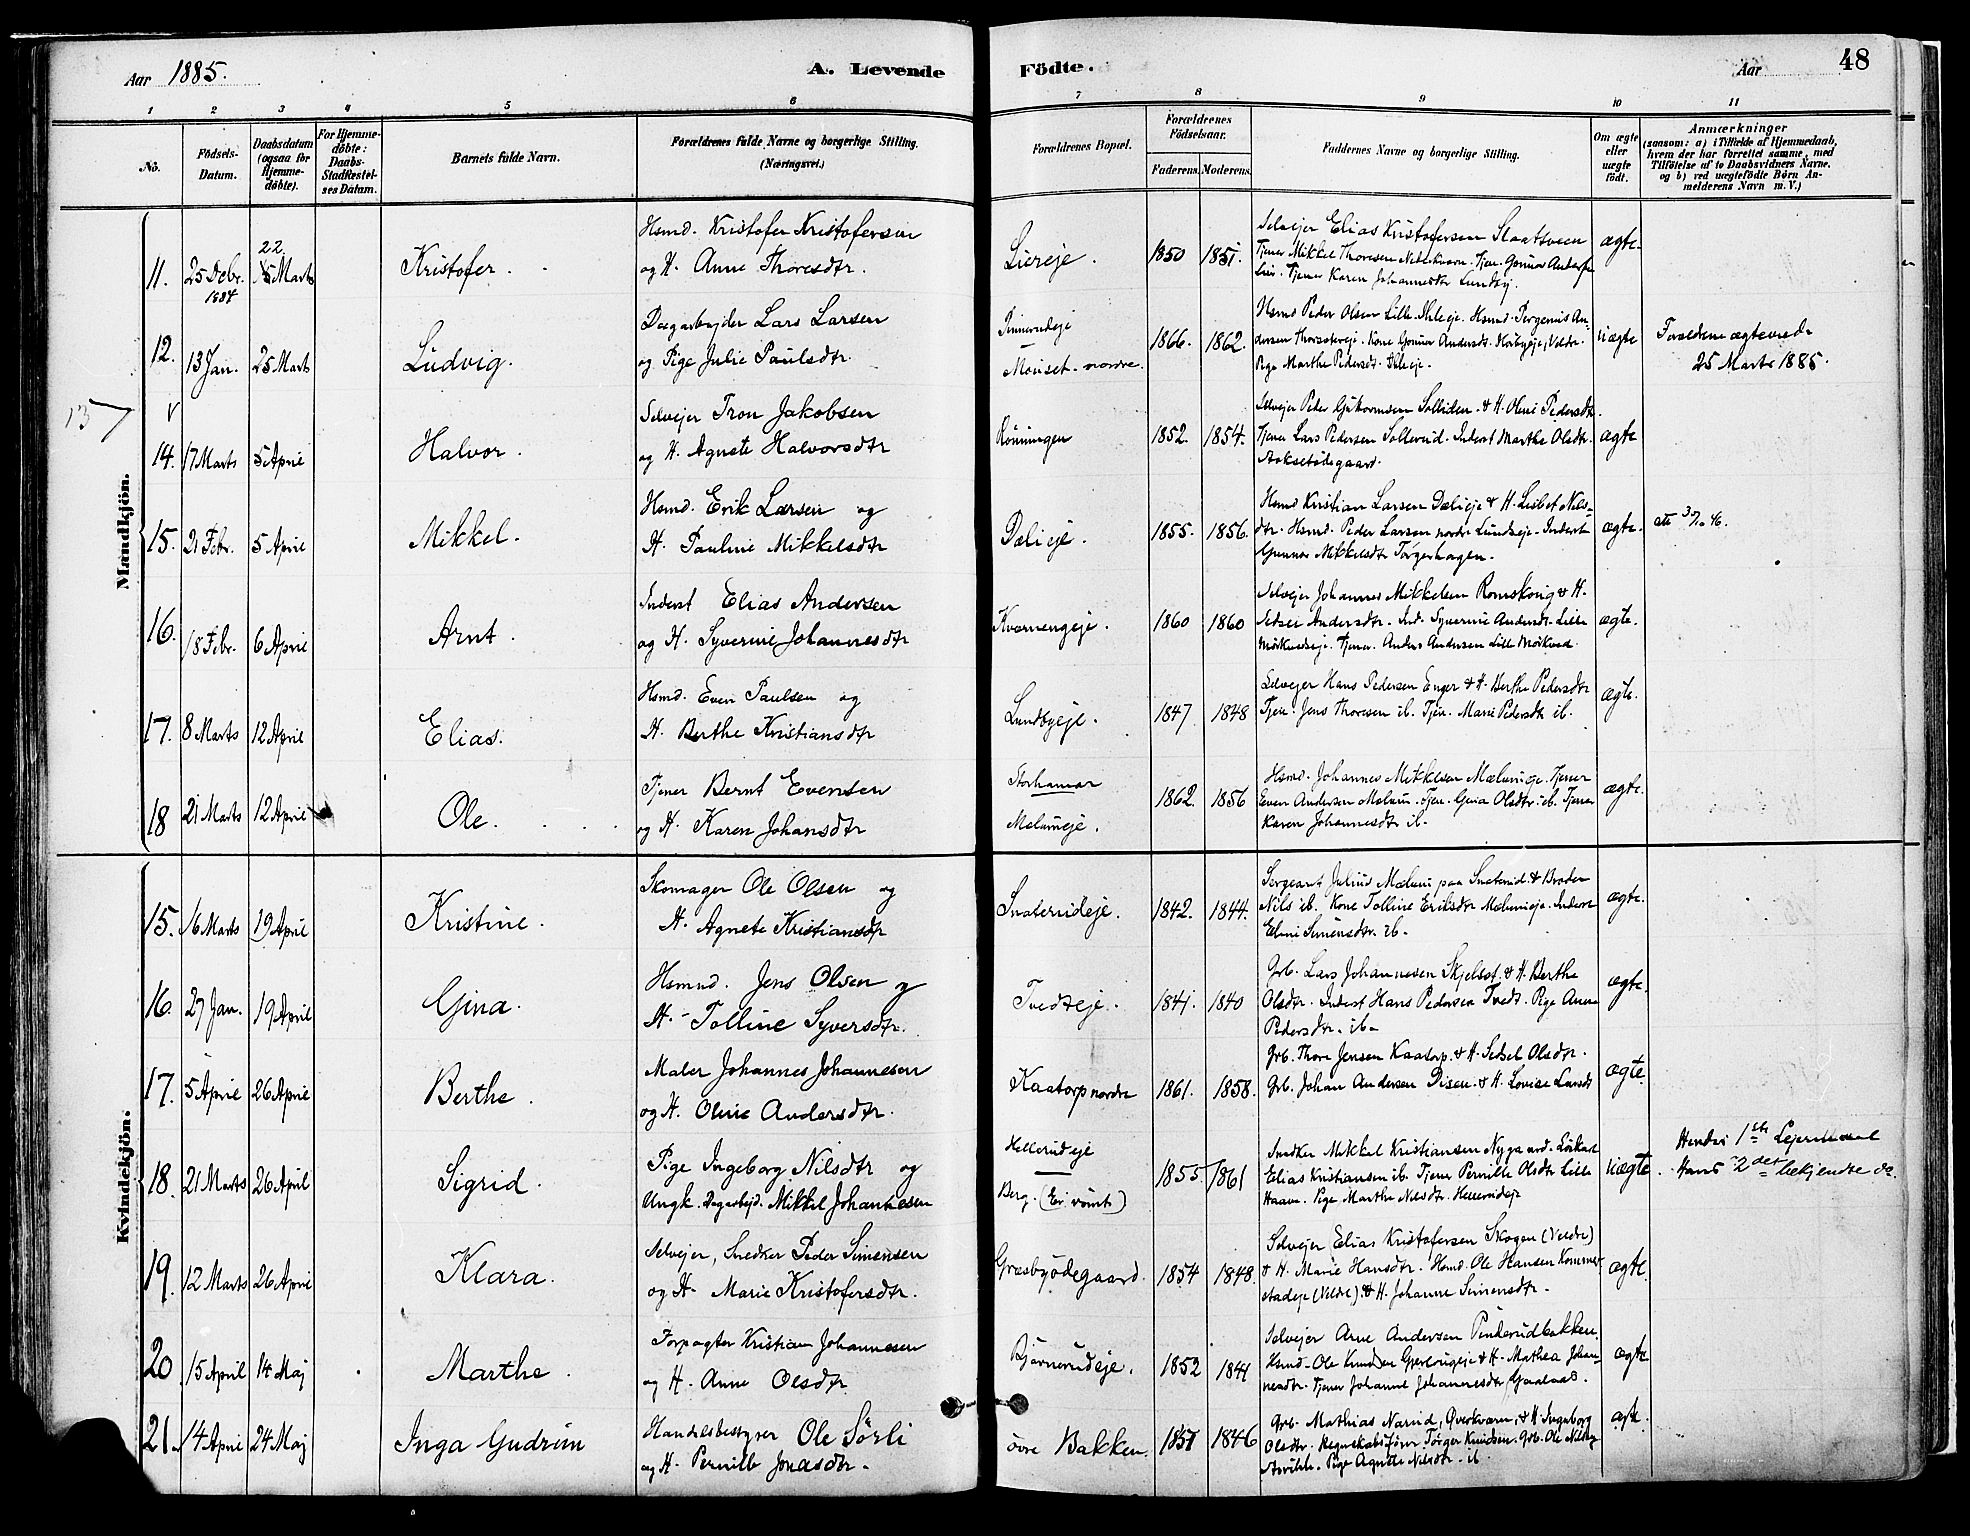 Aar 1885.
A. Levende Födte.
Aar 48
1 2 3 4 5 6 7 8 9 10 11
No.
Födsels-Datum.
Daabsdatum (ogsaa for Hjemmedöbte).
For Hjemmedöbte: Daabs-Stadfæstelses Datum.
Barnets fulde Navn.
Forældrenes fulde Navne og borgerlige Stilling. (Næringsvei.)
Forældrenes Bopæl.
Forældrenes Födselsaar.
Faderens. Moderens.
Faddernes Navne og borgerlige Stilling.
Om ægte eller uægte födt.
Anmærkninger
(saasom: a) i Tilfælde af Hjemmedaab, hvem der har forrettet samme, med Tilföielse af to Daabsvidners Navne. og b) ved uægtefödte Börn Anmelderens Navn m. V.)
Mandkjön.
11. 25 Debr. 1884 22 Marts Kristofer.
Hsmd. Kristofer Kristofersen
og H. Anne Thoresdtr.
Liereje. 1850 1851.
Selvejer Elias Kristofersen Slaatsveen
Tjener Mikkel Thoresen Nederkværn. Tjen. Gunnar Anders
Lier. Tjener Karen Johannesdtr Lundby.
ægte.
12. 13 Jan. 25 Marts Ludvig.
Dagarbejder Lars Larsen
og Pige Julie Paulsdtr.
Mouset nordre. 1866. 1862.
Hsmd Peder Olsen Lille Ihleeje. Hsmd. Jørgenius An-
dersen Kone Gunnar Andersdt. Veldr.
Pige Marthe Pedersdt. Ihleeje.
uægte
Foreldrene ægteviede
25 Marts 1885.
13 7
14. 17 Marts 5 April Halvor.
Selvejer Tron Jakobsen
og H. Agnete Halvorsdtr
Rönningen 1852. 1854.
Selvejer Peder Gutormsen Solliden. & H. Oline Pedersdtr.
Tjener Lars Pedersen Sollerud. Inderst Marthe Olsdtr.
ægte
15. 21 Febr. 5 April Mikkel.
Hsmd. Erik Larsen og
H. Pauline Mikkelsdtr
Dælieje. 1855. 1856.
Hsmd Kristian Larsen Dælieje & H. Lisbet Nils-
dtr. Hsmd. Peder Larsen nordre Lundseje. Inderst
Gunnar Mikkelsdtr Torgerhagen.
ægte.
16. 18 Febr. 6 April Arnt.
Inderst Elias Andersen
og H. Syverine Johannesdtr
Kværnengeje. 1860 1860
Selvejer Johannes Mikkelsen Romskoug & H.
Sidsel Andersdtr. Ind. Syverine Andersdt. Lille
Mörkvedseje. Tjener Anders Andersen Lille Mörkved.
ægte.
17. 8 Marts 12 April Elias.
Hsmd. Even Paulsen og
H. Berthe Kristiansdtr
Lundbyeje. 1847 1848
Selvejer Hans Pedersen Enger & H. Berthe Pedersdtr
Tjen. Jens Thoresen ib. Tjen. Marie Pedersdt. ib.
ægte.
18 21 Marts 12 April Ole.
Tjener Bernt Evensen
og H. Karen Johansdtr
Storhamar
Melumeje. 1862. 1856
Hsmd. Johannes Mikkelsen Mælumeje. Tjener
Even Andersen Melum. Tjen. Gina Olsdtr. ib. Tjener
Karen Johannesdtr ib.
ægte.
Kvindekjön.
15. 16 Marts 19 April Kristine.
Skomager Ole Olsen og
H. Agnete Kristiansdtr
Snaterudeje. 1842. 1844.
Sergeant Julius Mælum paa Snaterud & Broder
Nils ib. Kone Tolline Eriksdtr Mælumeje. Inderst
Eline Simensdtr. ib.
ægte.
16. 27 Jan. 19 April Gina.
Hsmd. Jens Olsen og
H. Tolline Syversdtr.
Tvedteje. 1841. 1840
Grb. Lars Johannesen Skjelsat. & H. Berthe
Olsdtr. Inderst Hans Pedersen Tvedt. Pige Anne
Pedersdtr. ib.
ægte.
17. 5 April 26 April Berthe.
Maler Johannes Johannesen
og H. Oline Andersdtr.
Kaatorp nordre 1861. 1858.
Grb. Thore Jensen Kaatorp. & H. Sidsel Olsdtr.
Grb. Johan Andersen Disen. & H. Lovise Larsdt
ægte.
18. 21 Marts 26 April Sigrid.
Pige Ingeborg Nilsdtr og
Ungk. Dagarbejd. Mikkel Johannesen
Hellerudeje
Berg. (Er römt) 1855. 1861
Snedker Mikkel Kristiansen Nygaard. Löskarl
Elias Kristiansen ib. Tjener Pernille Olsdtr Lille
Haave. Pige Marthe Nilsdtr. Hellerudeje
uægte.
Hendes 1ste Lejermaal
Hans 2det bekjendte do.
19. 12 Marts 26 April Klara.
Selvejer, Snedker Peder Simensen
og H. Marie Kristofersdtr.
Græsbyödegaard. 1854 1848.
Selvejer Elias Kristofersen Skogen (Veldre)
& H. Marie Hansdtr. Hsmd. Ole Hansen Kommer-
stadeje (Veldre) & H. Johanne Simensdtr.
ægte.
20 15 April 14 Maj Marthe.
Forpagter Kristian Johannesen
og H. Anne Olsdtr
Bjørnerudeje. 1852 1841
Selvejer Arne Andersen Pinderudbakken.
Hsmd. Ole Knudsen & H. Mathea Johan-
nesdtr. Tjener Johanne Johannesdtr Gaalaas.
ægte
21. 14 April 24 Maj Inga Gudrun
Handelsbestyrer Ole Sörli
og H. Pernille Jonasdtr.
övre Bakken. 1857 1846
Grb. Mathias Narud, Øverkværn, & H. Ingeborg
Olsdtr. Regnskabsförer Torger Knudsen. Grb. Ole Nilsen
Pige Agnete Nilsdtr. ib.
ægte.